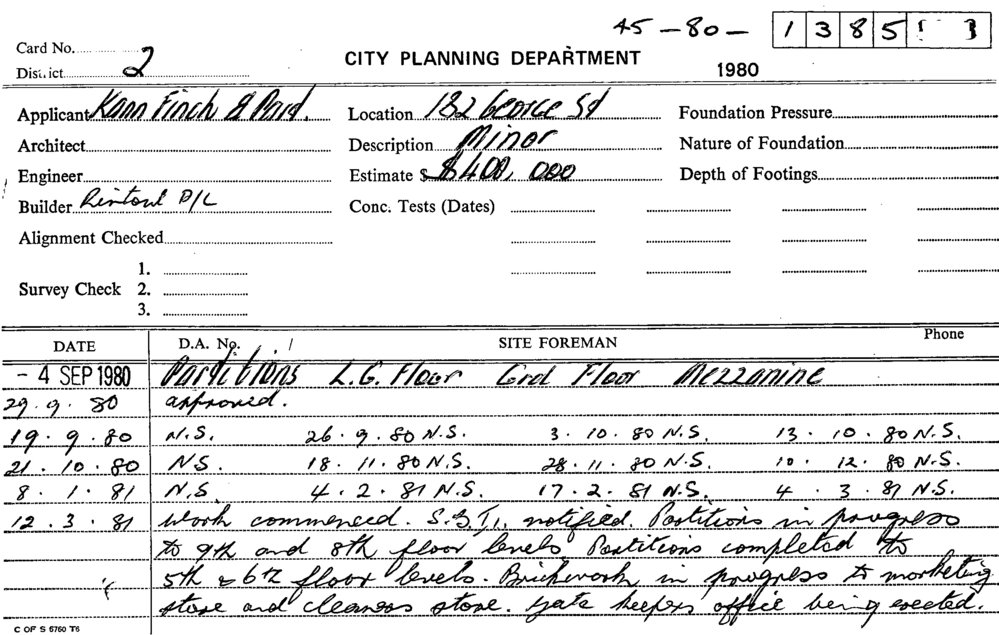 45 - 80 - 1385
Card No.
District 2
CITY PLANNING DEPARTMENT
1980
Applicant Kann Finch & Location 182 George St Foundation Pressure
Architect Description Minor Nature of Foundation
Engineer Estimate $ $400,000 Depth of Footings
Builder Rintoul P/L Conc. Tests (Dates)
Alignment Checked
1.
Survey Check 2.
3.
DATE D.A. No. SITE FOREMAN Phone
- 4 SEP 1980 Partitions L.G. Floor Grd Floor Mezzanine
29.9.80 approved.
19.9.80 N.S. 26.9.80 N.S. 3.10.80 N.S. 13.10.80 N.S.
21.10.80 NS. 18.11.80 N.S. 28.11.80 N.S. 10.12.80 N.S.
8.1.81 N.S. 4.2.81 N.S. 17.2.81 N.S. 4.3.81 N.S.
12.3.81 Work commenced. notified. Partitions in progress
to 9th and 8th floor levels. Partitions completed to
5th & 6th floor levels. Brickwork in progress to marketing
store and cleaners store. Gate keepers office being erected.
C OF S 6760 T6